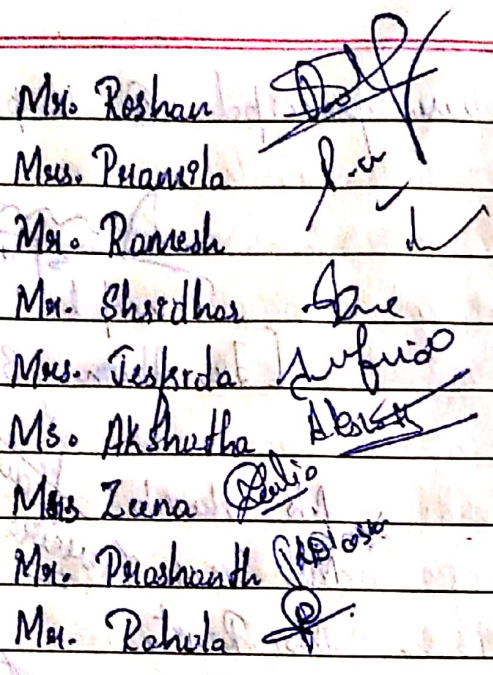 Mr. Roshan
Mrs. Pramila
Mr. Ramesh
Mr. Shridhar
Mrs. Jesfrda
Ms. Akshatha
Mrs Zeena
Mr. Prashanth
Mr. Rahula